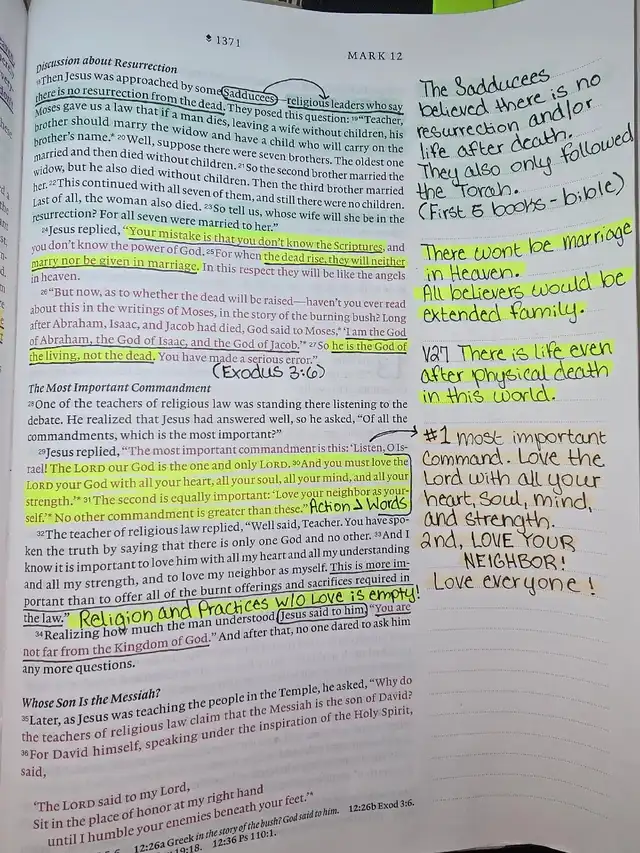 1371
MARK 12
Discussion about Resurrection
18Then Jesus was approached by some Sadducees—religious leaders who say
there is no resurrection from the dead. They posed this question: 19"Teacher,
Moses gave us a law that if a man dies, leaving a wife without children, his
brother should marry the widow and have a child who will carry on the
brother's name.* 20Well, suppose there were seven brothers. The oldest one
married and then died without children. 21So the second brother married the
widow, but he also died without children. Then the third brother married
her. 22This continued with all seven of them, and still there were no children.
Last of all, the woman also died. 23So tell us, whose wife will she be in the
resurrection? For all seven were married to her."
24Jesus replied, "Your mistake is that you don't know the Scriptures, and
you don't know the power of God. 25For when the dead rise, they will neither
marry nor be given in marriage. In this respect they will be like the angels
in heaven.
26"But now, as to whether the dead will be raised—haven't you ever read
about this in the writings of Moses, in the story of the burning bush? Long
after Abraham, Isaac, and Jacob had died, God said to Moses,* 'I am the God
of Abraham, the God of Isaac, and the God of Jacob.'* 27So he is the God of
the living, not the dead. You have made a serious error."
(Exodus 3:6)
The Most Important Commandment
28One of the teachers of religious law was standing there listening to the
debate. He realized that Jesus had answered well, so he asked, "Of all the
commandments, which is the most important?"
29Jesus replied, "The most important commandment is this: 'Listen, O Is-
rael! The LORD our God is the one and only LORD. 30And you must love the
LORD your God with all your heart, all your soul, all your mind, and all your
strength.'* 31The second is equally important: 'Love your neighbor as your-
self.'* No other commandment is greater than these." Action > Words
32The teacher of religious law replied, "Well said, Teacher. You have spo-
ken the truth by saying that there is only one God and no other. 33And I
know it is important to love him with all my heart and all my understanding
and all my strength, and to love my neighbor as myself. This is more im-
portant than to offer all of the burnt offerings and sacrifices required in
the law." Religion and Practices w/o Love is empty!
34Realizing how much the man understood, Jesus said to him, "You are
not far from the Kingdom of God." And after that, no one dared to ask him
any more questions.
Whose Son Is the Messiah?
35Later, as Jesus was teaching the people in the Temple, he asked, "Why do
the teachers of religious law claim that the Messiah is the son of David?
36For David himself, speaking under the inspiration of the Holy Spirit,
said,
'The LORD said to my Lord,
Sit in the place of honor at my right hand
until I humble your enemies beneath your feet.'*
12:26a Greek in the story of the bush? God said to him. 12:26b Exod 3:6.
12:36 Ps 110:1.
The Sadducees
believed there is no
resurrection and/or
life after death.
They also only followed
the Torah.
(First 5 books - bible)
There wont be marriage
in Heaven.
All believers would be
extended family.
V27 There is life even
after physical death
in this world.
#1 most important
Command. Love the
Lord with all your
heart, soul, mind,
and strength.
2nd, LOVE YOUR
NEIGHBOR!
Love everyone!